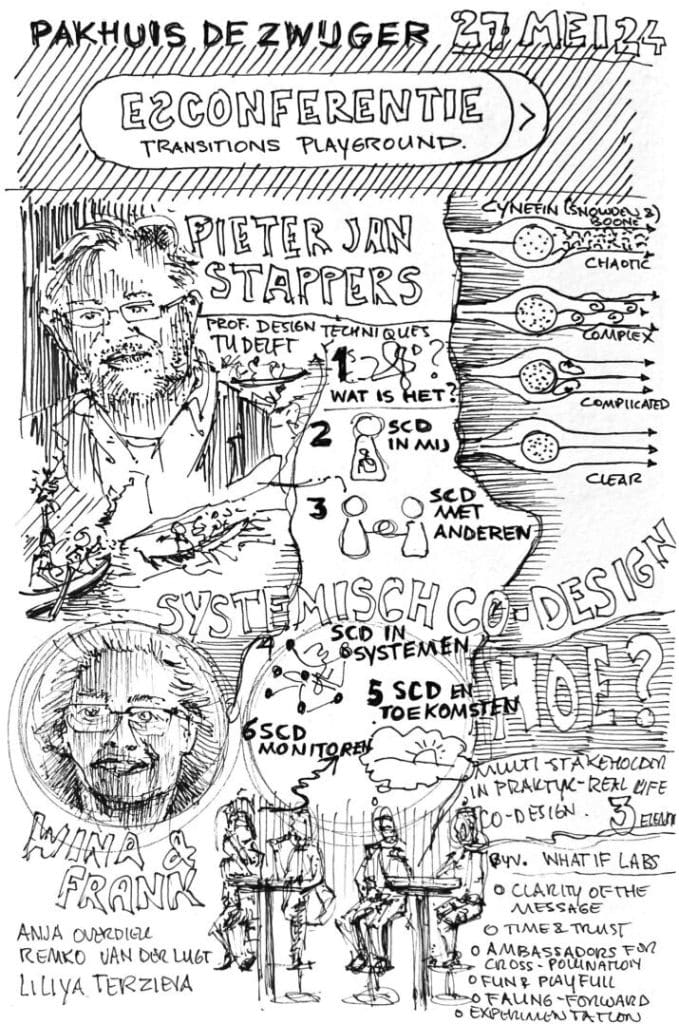 PAKHUIS DE ZWIJGER 27 MEI 24
ESCONFERENTIE >
TRANSITIONS PLAYGROUND.
PIETER JAN
STAPPERS
PROF. DESIGN TECHNIQUES
TU DELFT
CYNEFIN (SNOWDEN &
BOONE
CHAOTIC
COMPLEX
COMPLICATED
CLEAR
1
WAT IS HET?
2 SCD
IN MIJ
3 SCD
MET
ANDEREN
SYSTEMISCH CO-DESIGN
HOE?
4 SCD IN
SYSTEMEN
5 SCD EN
TOEKOMSTEN
6 SCD
MONITOREN
WINA &
FRANK
ANJA OVERDIEK
REMKO VAN DER LUGT
LILIYA TERZIEVA
MULTI-STAKEHOLDER
IN PRAKTIJK-REAL LIFE
CO-DESIGN. 3
BIJV. WHAT IF LABS
O CLARITY OF THE
MESSAGE
O TIME & TRUST
O AMBASSADORS FOR
CROSS-POLLINATION
O FUN & PLAYFULL
O FALING-FORWARD
O EXPERIMENTATION